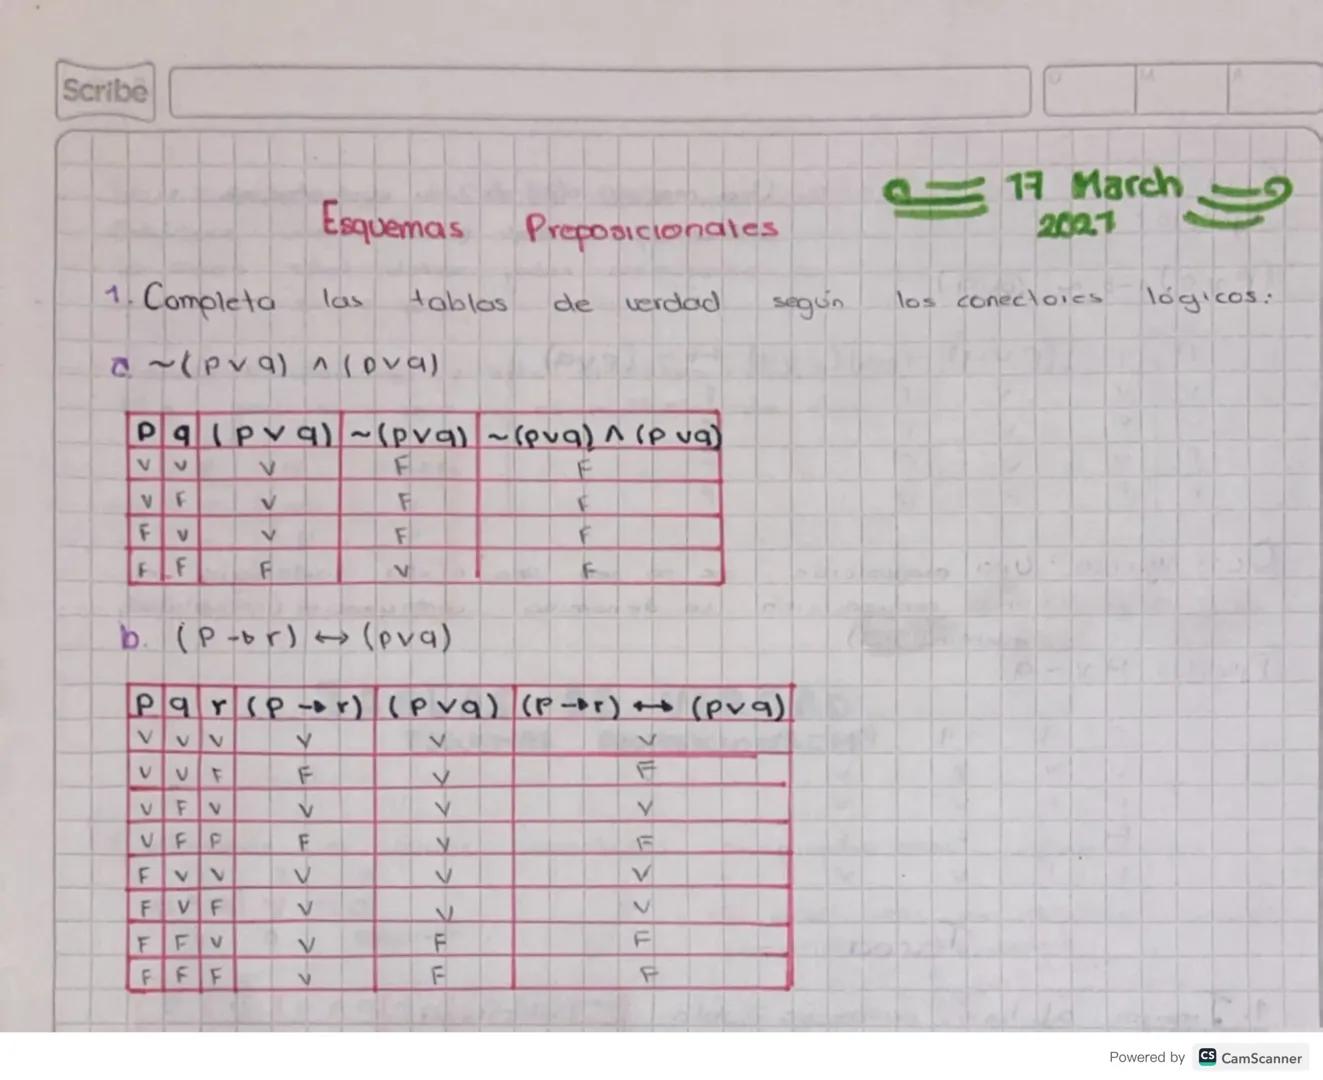 Scribe
17 March
2021
Esquemas Preposicionales
1. Completa las tablas de verdad según los conectores lógicos:
a ~(p∨q) ∧ (p∨q)
p q (p∨q) ~(p∨q) ~(p∨q) ∧ (p∨q)
V V V F F
V F V F F
F V V F F
F F F V F
b. (p→r) ↔ (p∨q)
p q r (p→r) (p∨q) (p→r) ↔ (p∨q)
V V V V V V
V V F F V F
V F V V V V
V F F F V F
F V V V V V
F V F V V V
F F V V F F
F F F V F F
Powered by CS CamScanner